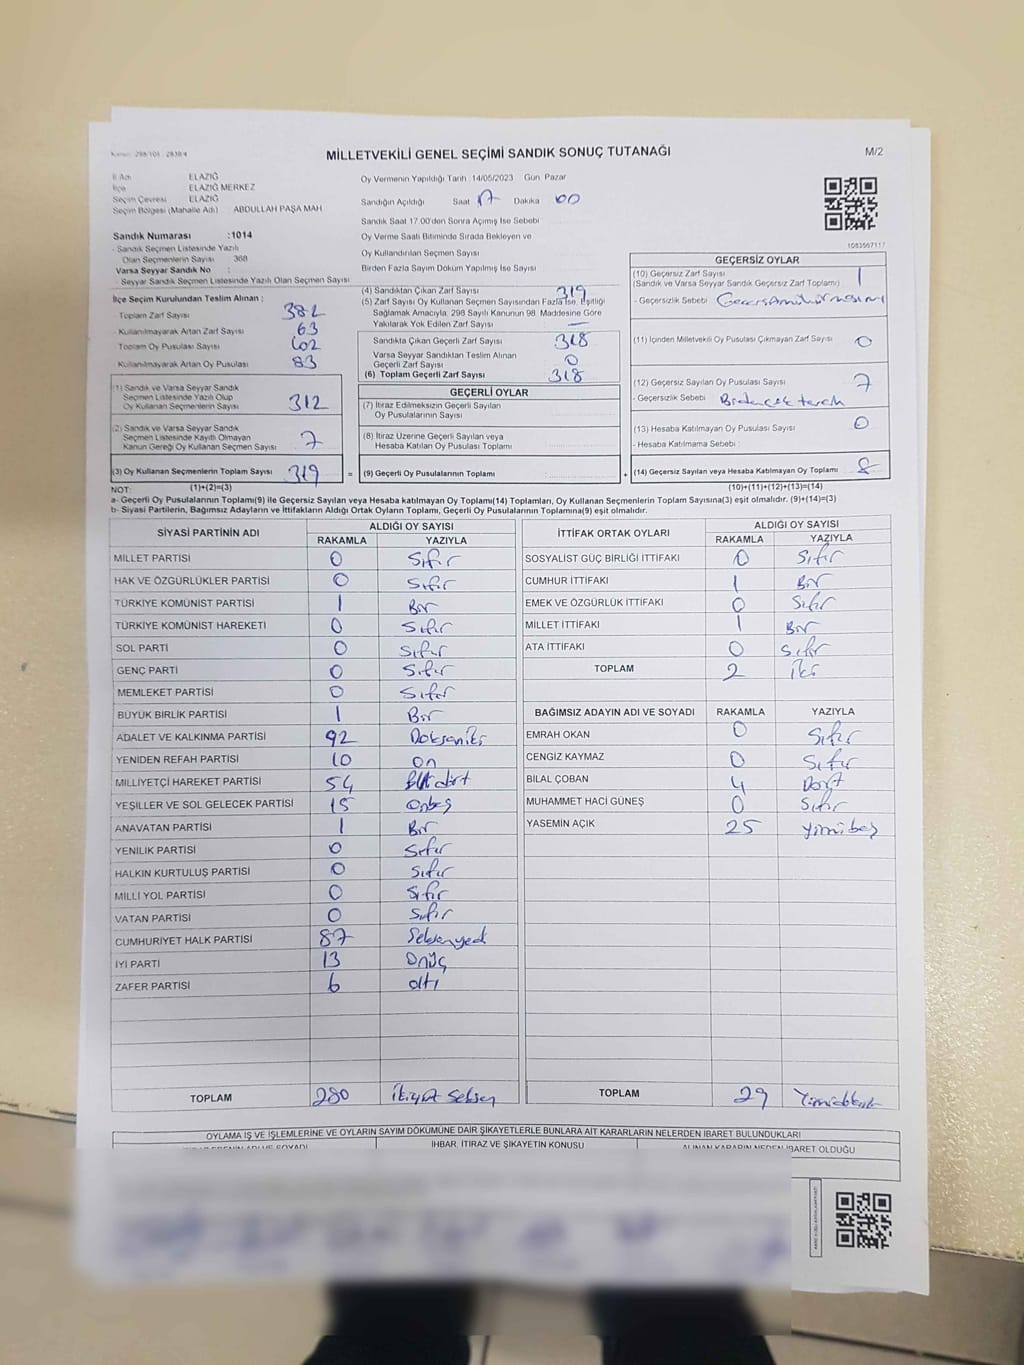 MİLLETVEKİLİ GENEL SEÇİMİ SANDIK SONUÇ TUTANAĞI
M/2
İl Adı ELAZIĞ
İlçe ELAZIĞ MERKEZ
Seçim Çevresi ELAZIĞ
Seçim Bölgesi (Mahalle Adı) ABDULLAH PAŞA MAH
Sandık Numarası :1014
- Sandık Seçmen Listesinde Yazılı
Olan Seçmenlerin Sayısı 368
Varsa Seyyar Sandık No :
- Seyyar Sandık Seçmen Listesinde Yazılı Olan Seçmen Sayısı
Oy Vermenin Yapıldığı Tarih :14/05/2023 Gün: Pazar
Sandığın Açıldığı Saat 17 Dakika 00
Sandık Saat 17.00'den Sonra Açımış İse Sebebi
Oy Verme Saati Bitiminde Sırada Bekleyen ve
Oy Kullandırılan Seçmen Sayısı
Birden Fazla Sayım Döküm Yapılmış İse Sayısı
1083567117
İlçe Seçim Kurulundan Teslim Alınan ;
- Toplam Zarf Sayısı 382
- Kullanılmayarak Artan Zarf Sayısı 63
Toplam Oy Pusulası Sayısı 402
Kullanılmayarak Artan Oy Pusulası 83
(1) Sandık ve Varsa Seyyar Sandık
Seçmen Listesinde Yazılı Olup
Oy Kullanan Seçmenlerin Sayısı 312
(2) Sandık ve Varsa Seyyar Sandık
Seçmen Listesinde Kayıtlı Olmayan
Kanun Gereği Oy Kullanan Seçmen Sayısı 7
(3) Oy Kullanan Seçmenlerin Toplam Sayısı 319
(1)+(2)=(3)
(4) Sandıktan Çıkan Zarf Sayısı 319
(5) Zarf Sayısı Oy Kullanan Seçmen Sayısından Fazla İse, Eşitliği
Sağlamak Amacıyla, 298 Sayılı Kanunun 98. Maddesine Göre
Yakılarak Yok Edilen Zarf Sayısı —
Sandıkta Çıkan Geçerli Zarf Sayısı 318
Varsa Seyyar Sandıktan Teslim Alınan
Geçerli Zarf Sayısı 0
(6) Toplam Geçerli Zarf Sayısı 318
GEÇERLİ OYLAR
(7) İtiraz Edilmeksizin Geçerli Sayılan
Oy Pusulalarının Sayısı
(8) İtiraz Üzerine Geçerli Sayılan veya
Hesaba Katılan Oy Pusulası Toplamı
= (9) Geçerli Oy Pusulalarının Toplamı
GEÇERSİZ OYLAR
(10) Geçersiz Zarf Sayısı 1
(Sandık ve Varsa Seyyar Sandık Geçersiz Zarf Toplamı)
- Geçersizlik Sebebi
(11) İçinden Milletvekili Oy Pusulası Çıkmayan Zarf Sayısı 0
(12) Geçersiz Sayılan Oy Pusulası Sayısı 7
- Geçersizlik Sebebi
(13) Hesaba Katılmayan Oy Pusulası Sayısı 0
- Hesaba Katılmama Sebebi :
+ (14) Geçersiz Sayılan veya Hesaba Katılmayan Oy Toplamı 8
(10)+(11)+(12)+(13)=(14)
NOT:
a- Geçerli Oy Pusulalarının Toplamı(9) ile Geçersiz Sayılan veya Hesaba katılmayan Oy Toplamı(14) Toplamları, Oy Kullanan Seçmenlerin Toplam Sayısına(3) eşit olmalıdır. (9)+(14)=(3)
b- Siyasi Partilerin, Bağımsız Adayların ve İttifakların Aldığı Ortak Oyların Toplamı, Geçerli Oy Pusulalarının Toplamına(9) eşit olmalıdır.
SİYASİ PARTİNİN ADI ALDIĞI OY SAYISI
RAKAMLA YAZIYLA
MİLLET PARTİSİ 0 Sıfır
HAK VE ÖZGÜRLÜKLER PARTİSİ 0 Sıfır
TÜRKİYE KOMÜNİST PARTİSİ 1 Bir
TÜRKİYE KOMÜNİST HAREKETİ 0 Sıfır
SOL PARTİ 0 Sıfır
GENÇ PARTİ 0 Sıfır
MEMLEKET PARTİSİ 0 Sıfır
BÜYÜK BİRLİK PARTİSİ 1 Bir
ADALET VE KALKINMA PARTİSİ 92 Doksaniki
YENİDEN REFAH PARTİSİ 10 on
MİLLİYETÇİ HAREKET PARTİSİ 54
YEŞİLLER VE SOL GELECEK PARTİSİ 15 onbeş
ANAVATAN PARTİSİ 1 Bir
YENİLİK PARTİSİ 0 Sıfır
HALKIN KURTULUŞ PARTİSİ 0 Sıfır
MİLLİ YOL PARTİSİ 0 Sıfır
VATAN PARTİSİ 0 Sıfır
CUMHURİYET HALK PARTİSİ 87 Seksenyedi
İYİ PARTİ 13 onüç
ZAFER PARTİSİ 6 altı
TOPLAM 280 İkiyüz Seksen
İTTİFAK ORTAK OYLARI ALDIĞI OY SAYISI
RAKAMLA YAZIYLA
SOSYALİST GÜÇ BİRLİĞİ İTTİFAKI 0 Sıfır
CUMHUR İTTİFAKI 1 Bir
EMEK VE ÖZGÜRLÜK İTTİFAKI 0 Sıfır
MİLLET İTTİFAKI 1 Bir
ATA İTTİFAKI 0 Sıfır
TOPLAM 2 İki
BAĞIMSIZ ADAYIN ADI VE SOYADI RAKAMLA YAZIYLA
EMRAH OKAN 0 Sıfır
CENGİZ KAYMAZ 0 Sıfır
BİLAL ÇOBAN 4 Dört
MUHAMMET HACİ GÜNEŞ 0 Sıfır
YASEMİN AÇIK 25 yirmibeş
TOPLAM 29 Yirmidokuz
OYLAMA İŞ VE İŞLEMLERİNE VE OYLARIN SAYIM DÖKÜMÜNE DAİR ŞİKAYETLERLE BUNLARA AİT KARARLARIN NELERDEN İBARET BULUNDUKLARI
İHBAR, İTİRAZ VE ŞİKAYETİN KONUSU
ALINAN KARARIN NEDEN İBARET OLDUĞU